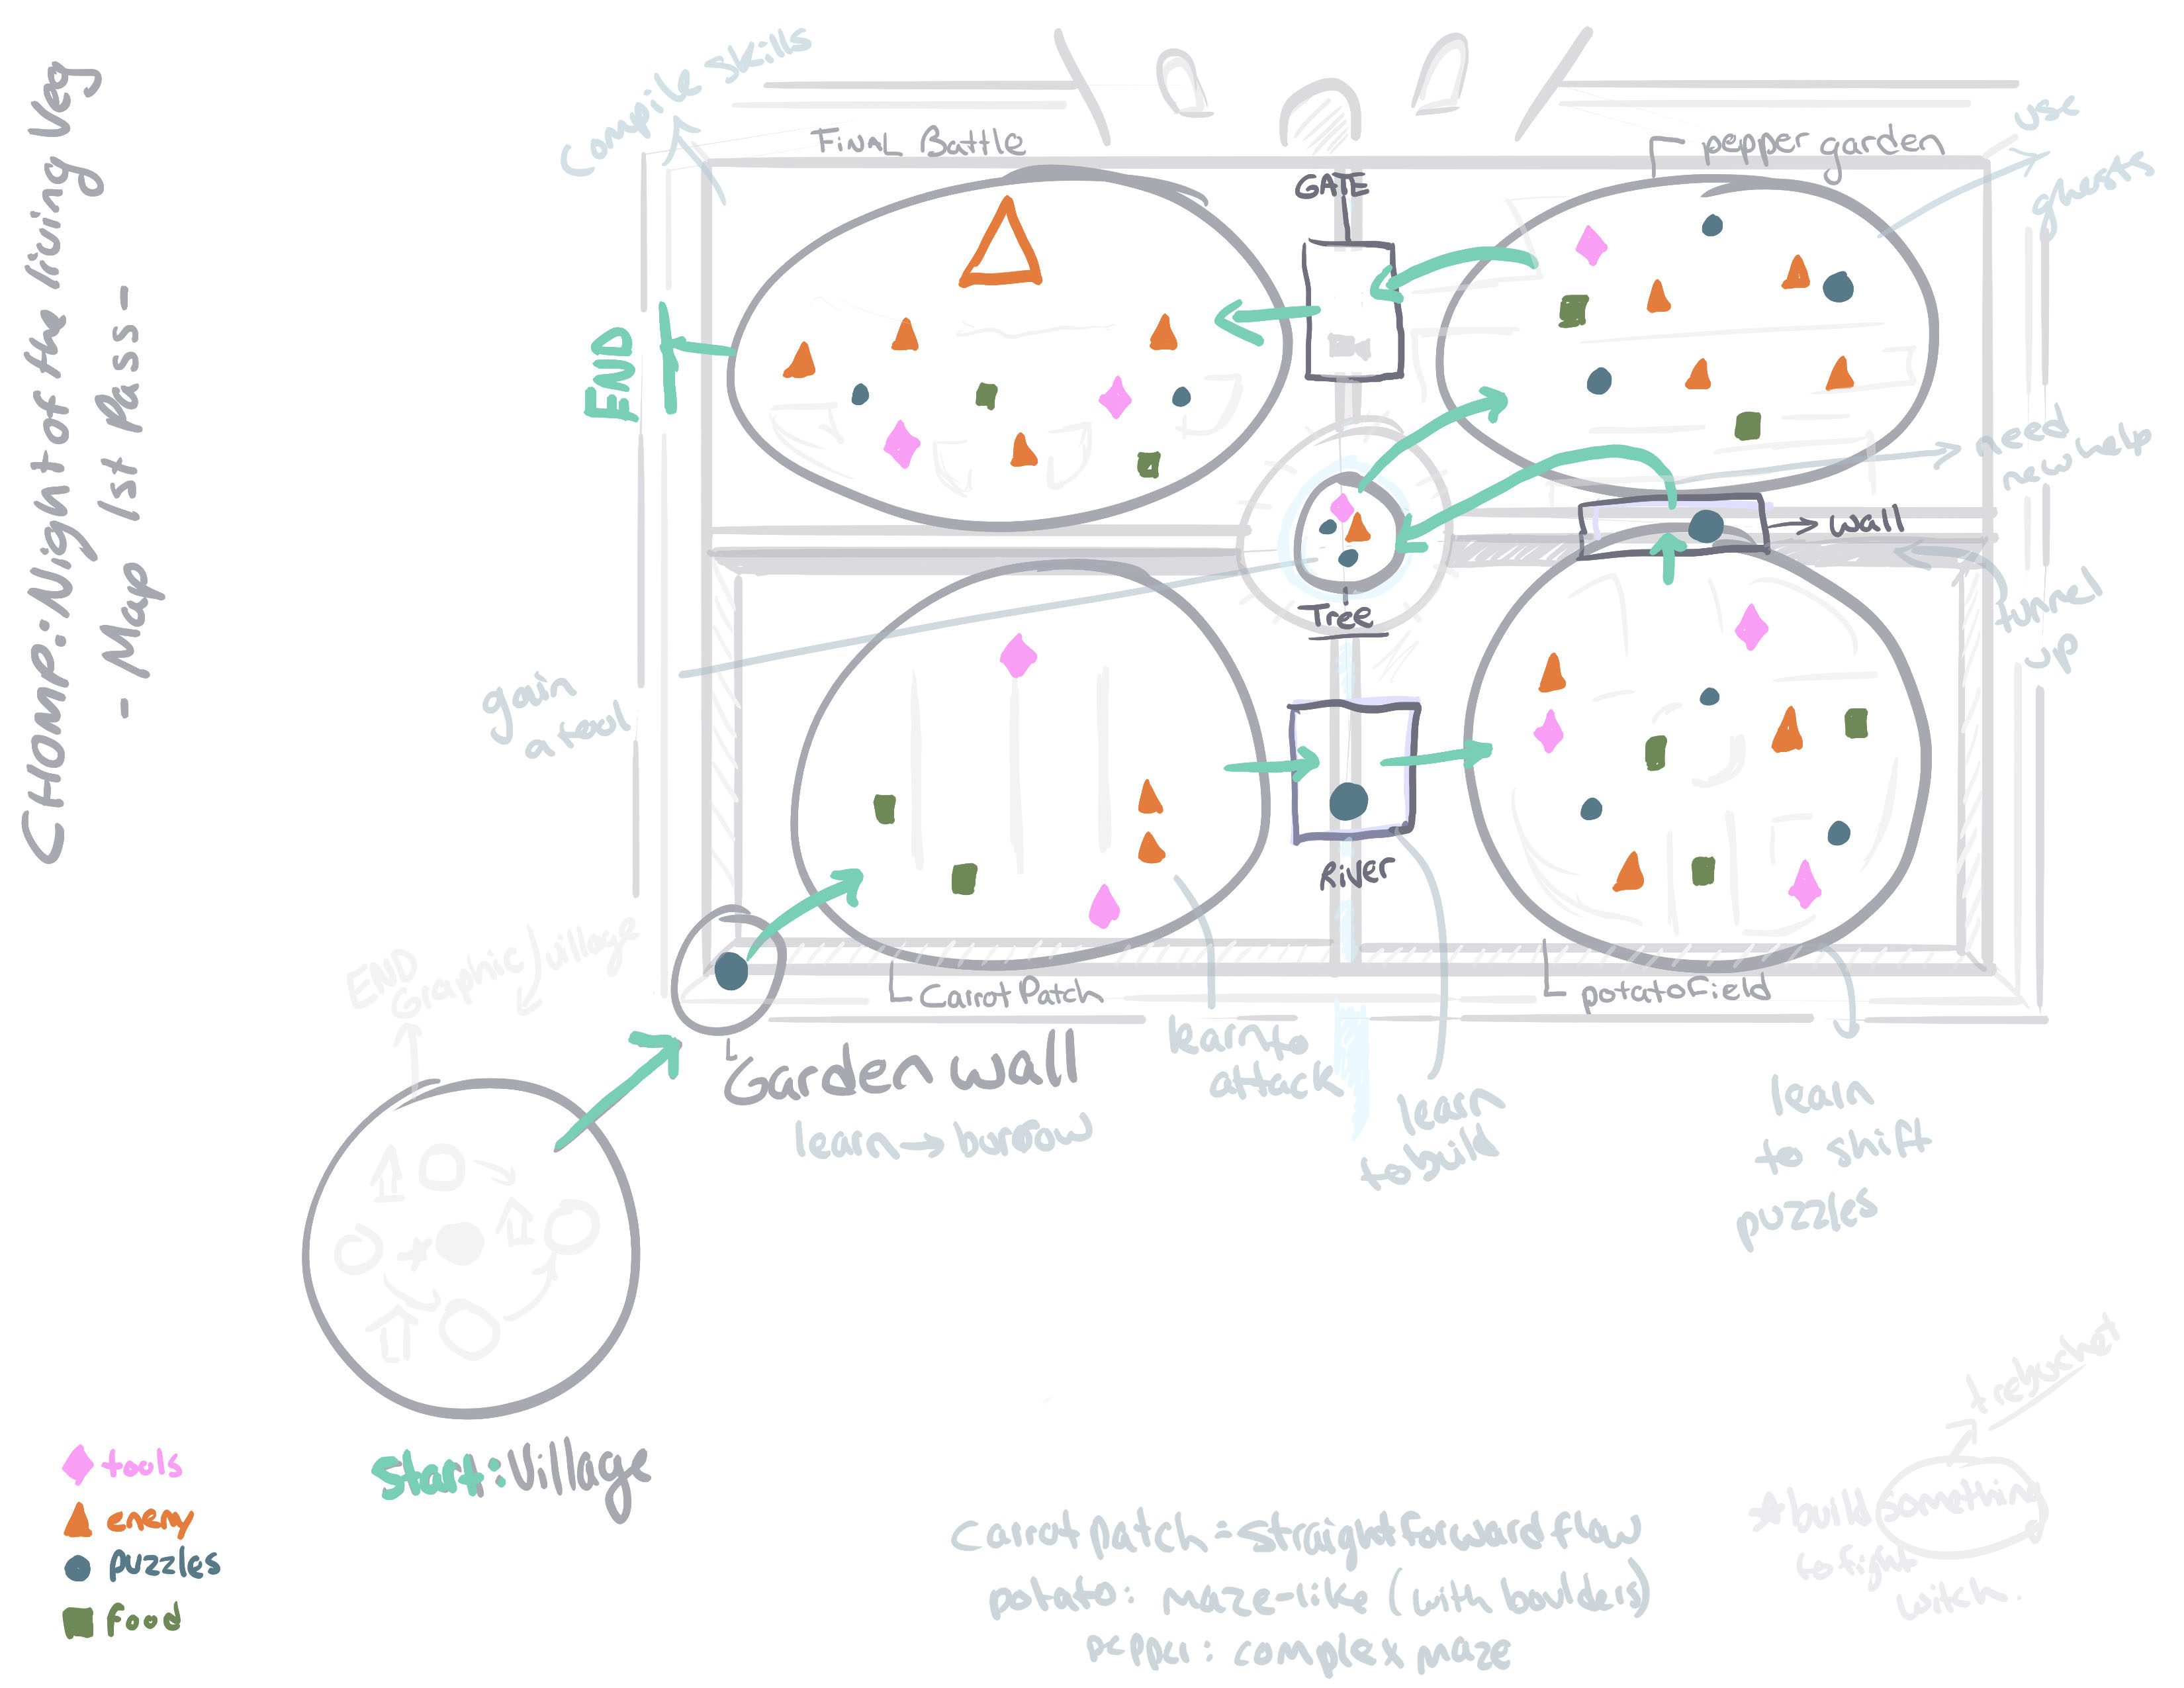 CHOMP: Night of the living Veg
- Map 1st Pass -
Compile skills
Final Battle
GATE
pepper garden
use
ghosts
END
need
new help
wall
Tree
tunnel
up
gain
a tool
River
END
Graphic village
Carrot Patch
potato Field
Garden wall
learn → burrow
learn to
attack
learn
to build
learn
to shift
puzzles
start: Village
tools
enemy
puzzles
food
carrot patch = straight forward flow
potato: maze-like (with boulders)
pepper: complex maze
trebuchet
* build something
to fight
witch.